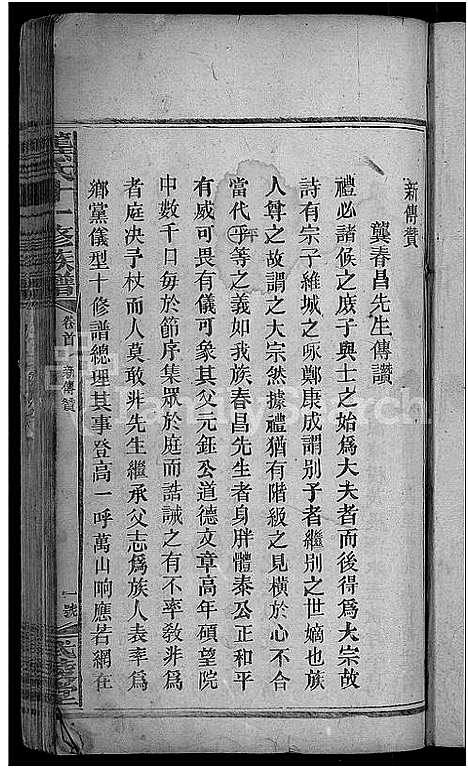 新傳贊
龔春昌先生傳讚
禮必諸候之庻子與士之始爲大夫者而後得爲大宗故
詩有宗子維城之咏鄭康成謂别子者繼别之世嫡也族
人尊之故謂之大宗然據禮猶有階級之見橫於心不合
當代平等之義如我族春昌先生者身胖體泰公正和平
有威可畏有儀可象其父元鈺公道德文章高年碩望院
中數千日毎於節序集眾於庭而誥誡之有不率教非爲
者庭决予杖而人莫敢非先生繼承父志爲族人表率爲
鄉黨儀型十修譜總理其事登高一呼萬山响應若網在
龔氏十一修族譜
卷首
新傳贊
一號
FamilySearch